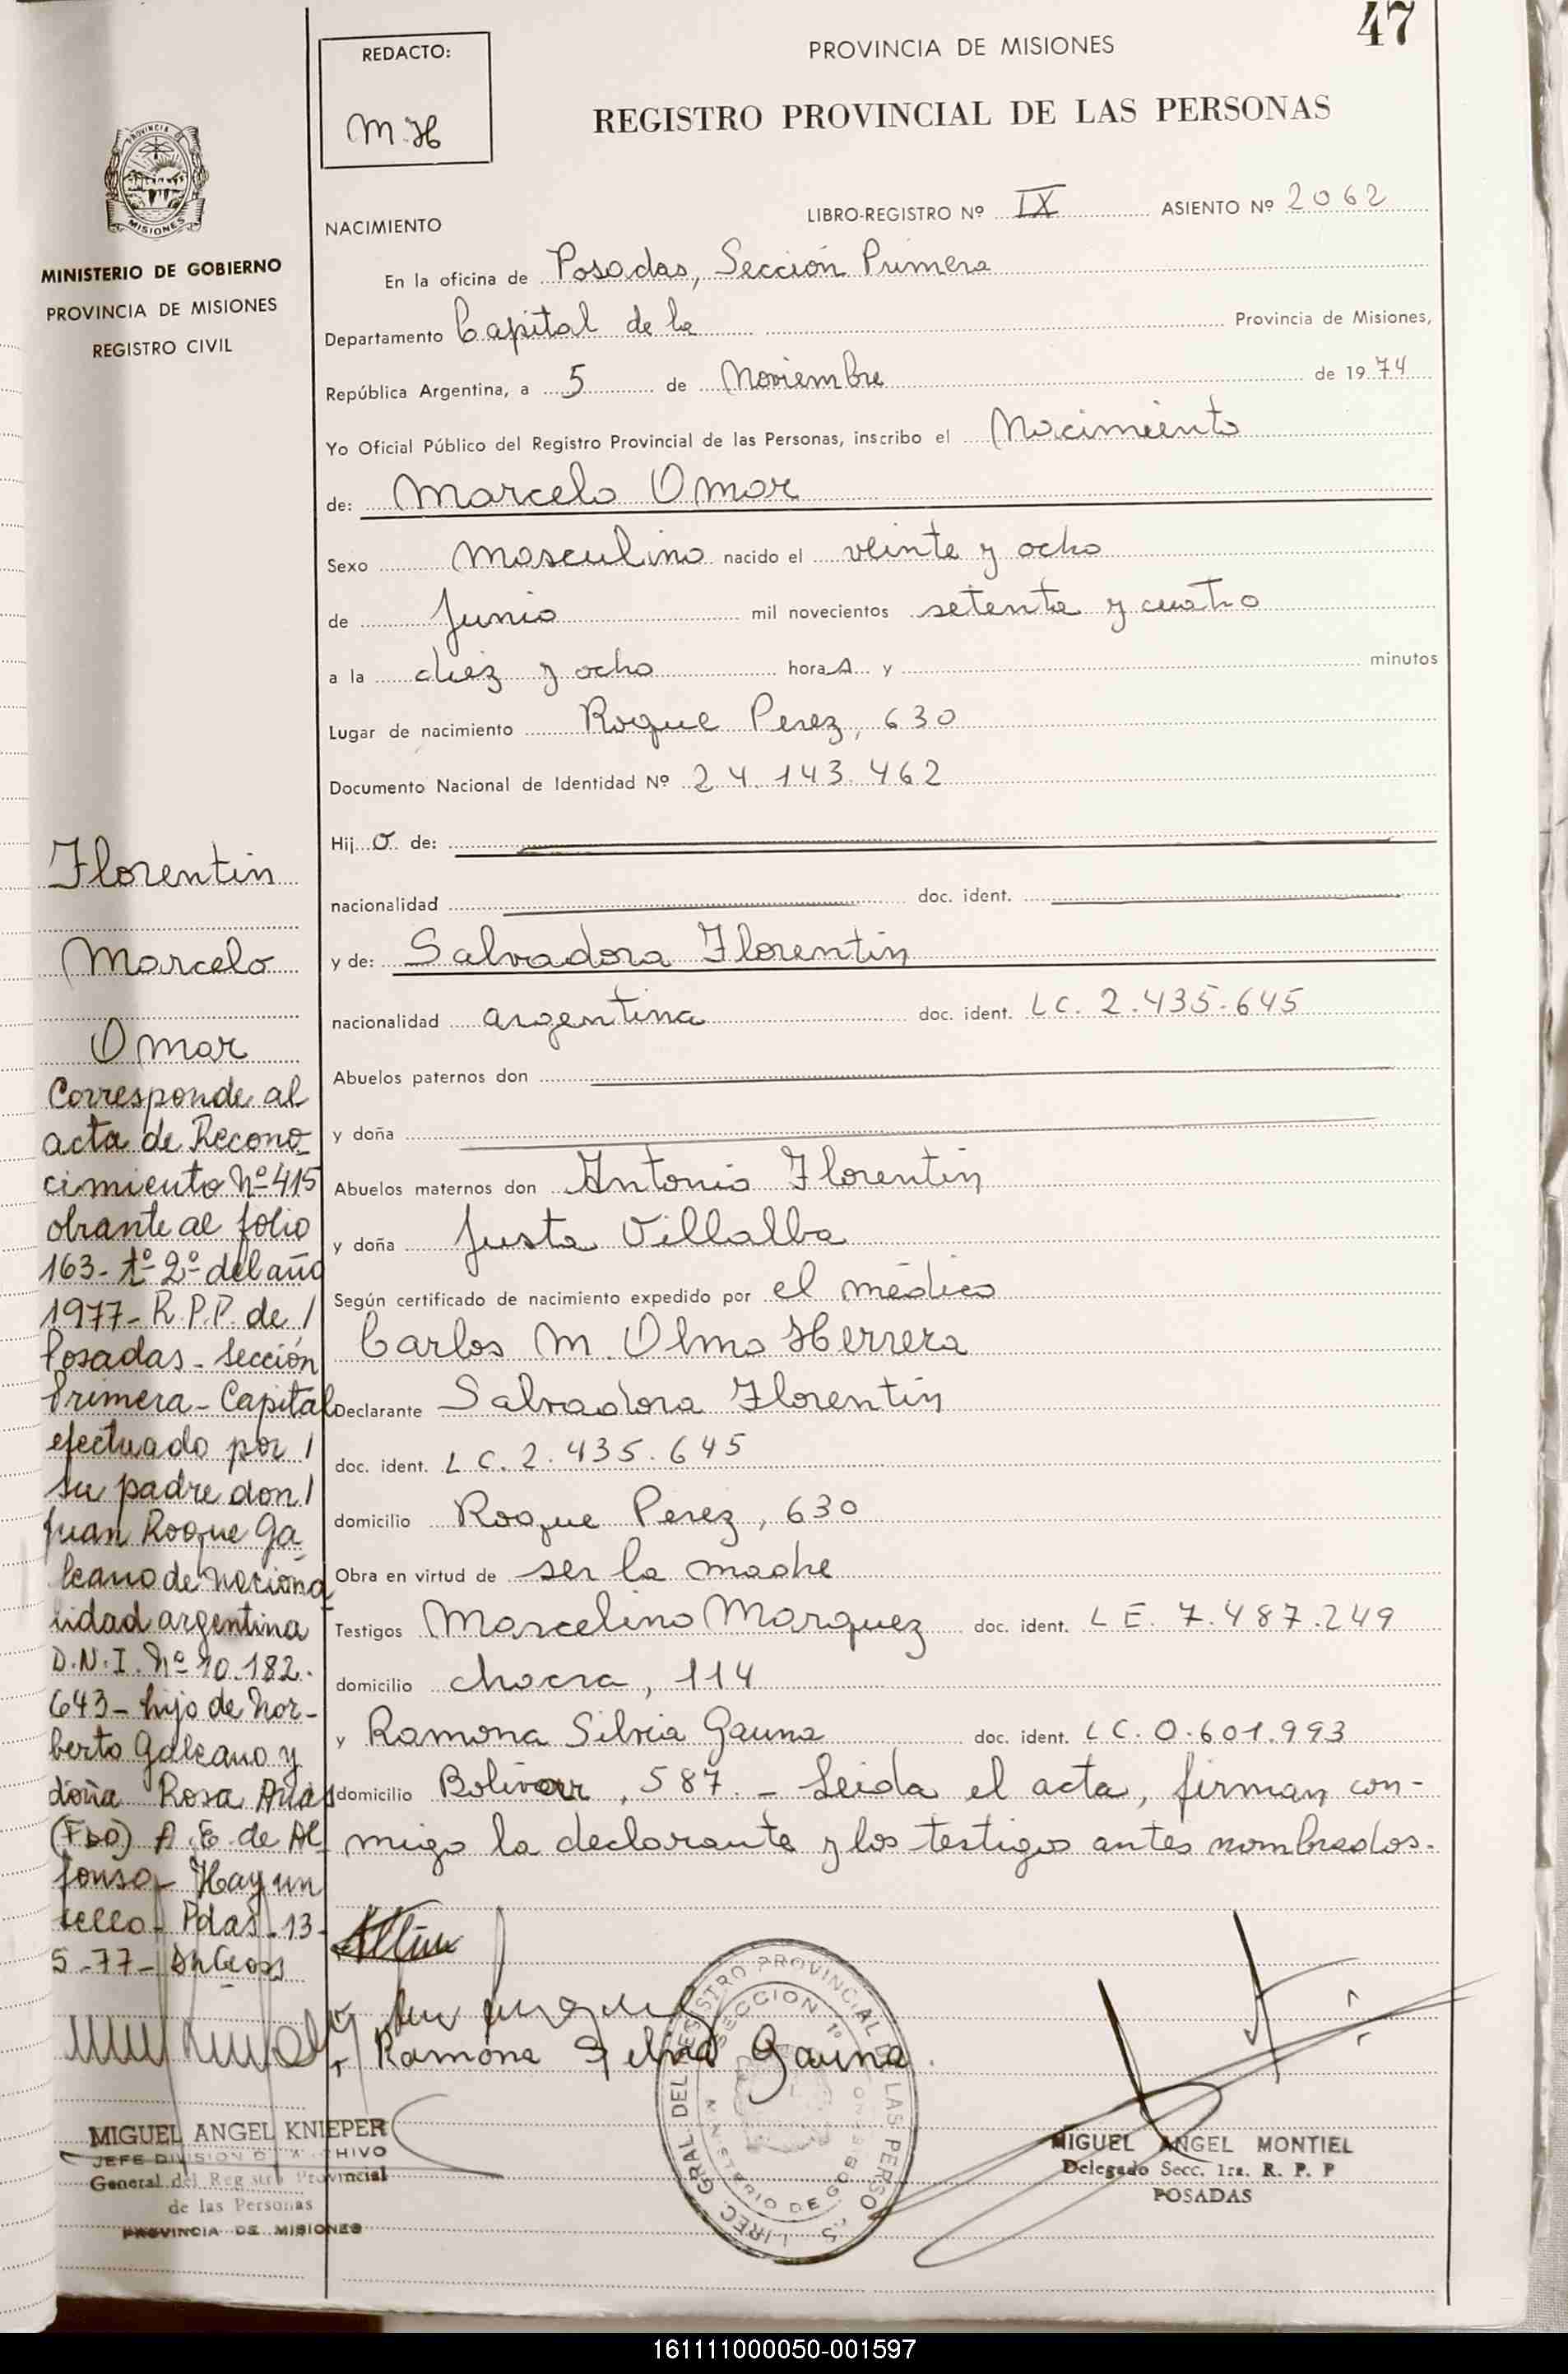 47
REDACTO:
M.H
PROVINCIA DE MISIONES
REGISTRO PROVINCIAL DE LAS PERSONAS
PROVINCIA DE
MISIONES
MINISTERIO DE GOBIERNO
PROVINCIA DE MISIONES
REGISTRO CIVIL
NACIMIENTO
LIBRO-REGISTRO Nº IX ASIENTO Nº 2062
En la oficina de Posadas, Sección Primera
Departamento Capital de la Provincia de Misiones,
República Argentina, a 5 de Noviembre de 1974
Yo Oficial Público del Registro Provincial de las Personas, inscribo el Nacimiento
de: Marcelo Omar
Sexo Masculino nacido el veinte y ocho
de Junio mil novecientos setenta y cuatro
a la diez y ocho hora s y minutos
Lugar de nacimiento Roque Perez, 630
Documento Nacional de Identidad Nº 24.143.462
Hij o de:
nacionalidad doc. ident.
y de: Salvadora Florentin
nacionalidad argentina doc. ident. LC. 2.435.645
Abuelos paternos don
y doña
Abuelos maternos don Antonio Florentin
y doña Justa Villalba
Según certificado de nacimiento expedido por el médico
Carlos M. Olmo Herrera
Declarante Salvadora Florentin
doc. ident. LC. 2.435.645
domicilio Roque Perez, 630
Obra en virtud de ser la madre
Testigos Marcelino Marquez doc. ident. LE. 7.487.249
domicilio chacra, 114
y Ramona Silvia Gauna doc. ident. LC. 0.601.993
domicilio Bolivar, 587. - Leida el acta, firman con-
migo la declarante y los testigos antes nombrados.
Florentin
Marcelo
Omar
Corresponde al
acta de Recono-
cimiento Nº 415
obrante al folio
163- tº 2º del año
1977- R.P.P. de /
Posadas - Sección
Primera - Capital
efectuado por /
su padre don /
Juan Roque Ga-
leano de naciona-
lidad argentina
D.N.I. Nº 10.182.
643- hijo de Nor-
berto Galeano y
doña Rosa Arias
(FDO) A.E. de Al-
fonso- Hay un
sello- Pdas-13-
5-77-
Ramona Silvia Gauna.
DIREC. GRAL DEL REGISTRO PROVINCIAL DE LAS PERSONAS
SECCION 1º
MINISTERIO DE GOBIERNO
MIGUEL ANGEL KNIEPER
JEFE DIVISION ARCHIVO
General del Registro Provincial
de las Personas
PROVINCIA DE MISIONES
MIGUEL ANGEL MONTIEL
Delegado Secc. 1ra. R. P. P
POSADAS
161111000050-001597